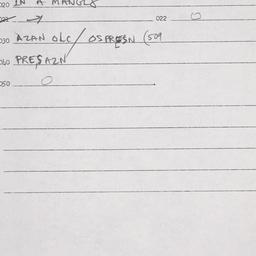 020 IN A MANGLE
022 0
030 AZAN OLC / OSPRESN (509
040 PRESAZN
050 0